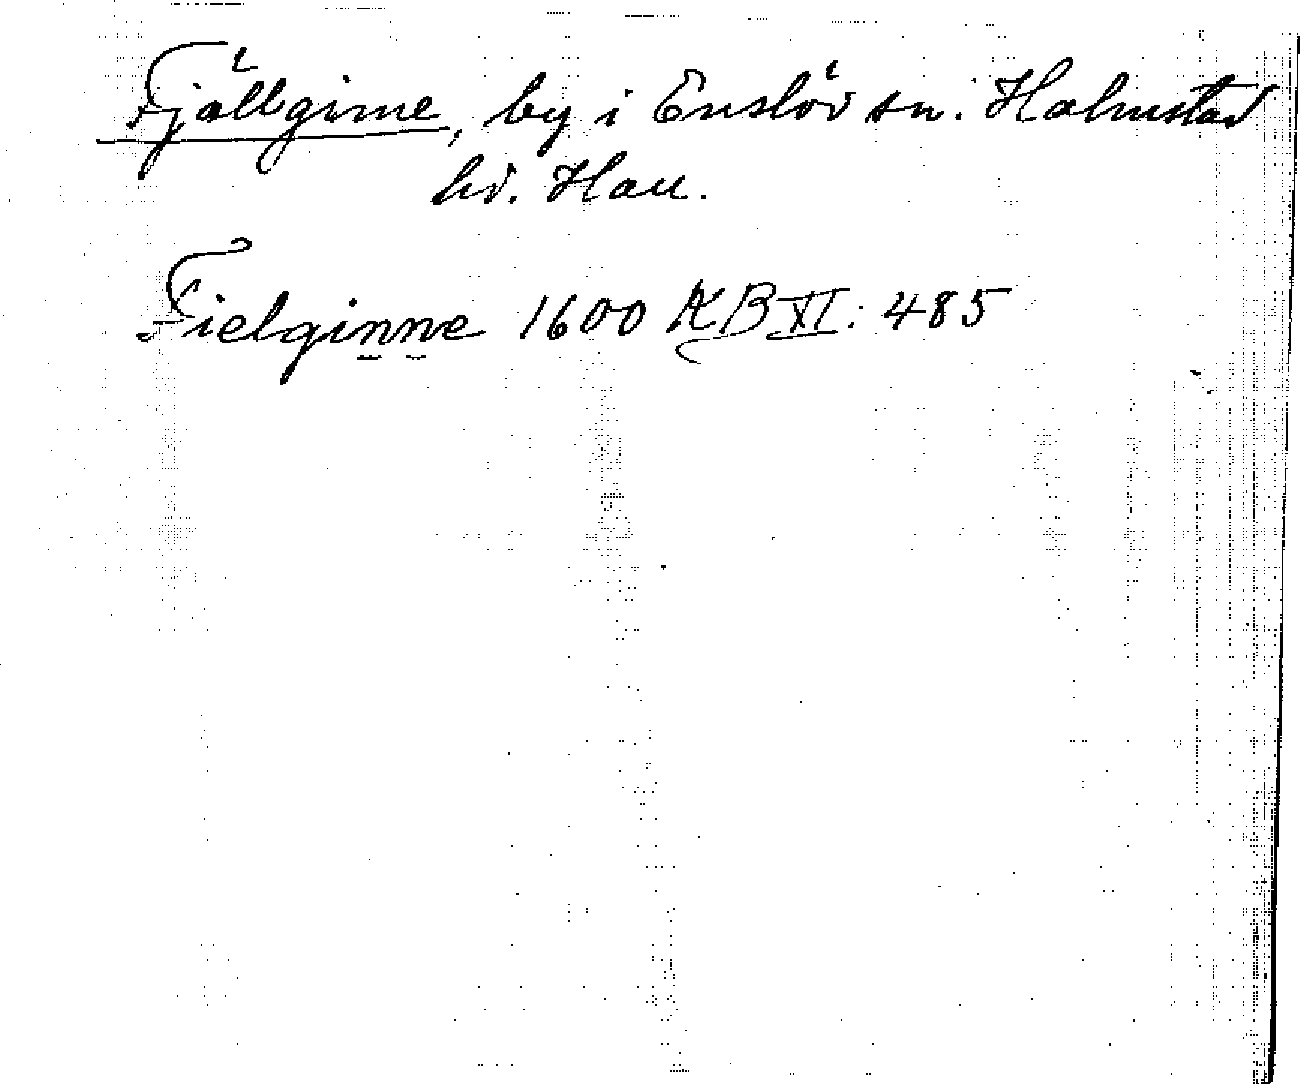 Fjällginne, by i Enslöv sn. Halmstad
hd. Hall.
Fielginne 1600 KB XI: 485